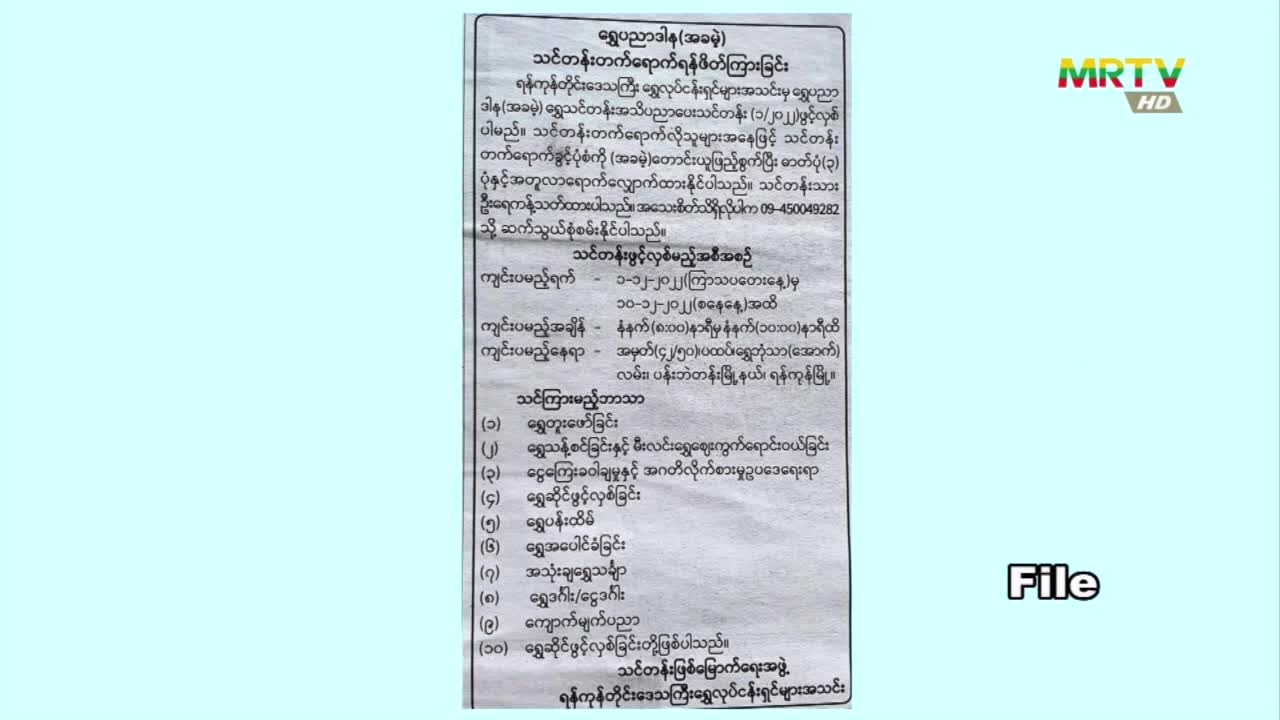 ရွှေပညာဒါန(အခမဲ့)
သင်တန်းတက်ရောက်ရန်ဖိတ်ကြားခြင်း
ရန်ကုန်တိုင်းဒေသကြီး ရွှေလုပ်ငန်းရှင်များအသင်းမှ ရွှေပညာ
ဒါန(အခမဲ့) ရွှေသင်တန်းအသိပညာပေးသင်တန်း (၁/၂၀၂၂)ဖွင့်လှစ်
ပါမည်။ သင်တန်းတက်ရောက်လိုသူများအနေဖြင့် သင်တန်း
တက်ရောက်ခွင့်ပုံစံကို (အခမဲ့)တောင်းယူဖြည့်စွက်ပြီး ဓာတ်ပုံ(၃)
ပုံနှင့်အတူလာရောက်လျှောက်ထားနိုင်ပါသည်။ သင်တန်းသား
ဦးရေကန့်သတ်ထားပါသည်။ အသေးစိတ်သိရှိလိုပါက 09-450049282
သို့ ဆက်သွယ်စုံစမ်းနိုင်ပါသည်။
သင်တန်းဖွင့်လှစ်မည့်အစီအစဉ်
ကျင်းပမည့်ရက် - ၁-၁၂-၂၀၂၂(ကြာသပတေးနေ့)မှ
၁၀-၁၂-၂၀၂၂(စနေနေ့)အထိ
ကျင်းပမည့်အချိန် - နံနက်(၈:၀၀)နာရီမှနံနက်(၁၀:၀၀)နာရီထိ
ကျင်းပမည့်နေရာ - အမှတ်(၄၂/၅၀)၊ပထပ်၊ရွှေဘုံသာ(အောက်)
လမ်း၊ ပန်းဘဲတန်းမြို့နယ်၊ ရန်ကုန်မြို့။
သင်ကြားမည့်ဘာသာ
(၁) ရွှေတူးဖော်ခြင်း
(၂) ရွှေသန့်စင်ခြင်းနှင့် မီးလင်းရွှေဈေးကွက်ရောင်းဝယ်ခြင်း
(၃) ငွေကြေးခဝါချမှုနှင့် အဂတိလိုက်စားမှုဥပဒေရေးရာ
(၄) ရွှေဆိုင်ဖွင့်လှစ်ခြင်း
(၅) ရွှေပန်းထိမ်
(၆) ရွှေအပေါင်ခံခြင်း
(၇) အသုံးချရွှေသင်္ချာ
(၈) ရွှေဒင်္ဂါး/ငွေဒင်္ဂါး
(၉) ကျောက်မျက်ပညာ
(၁၀) ရွှေဆိုင်ဖွင့်လှစ်ခြင်းတို့ဖြစ်ပါသည်။
သင်တန်းဖြစ်မြောက်ရေးအဖွဲ့
ရန်ကုန်တိုင်းဒေသကြီးရွှေလုပ်ငန်းရှင်များအသင်း
MRTV
HD
File